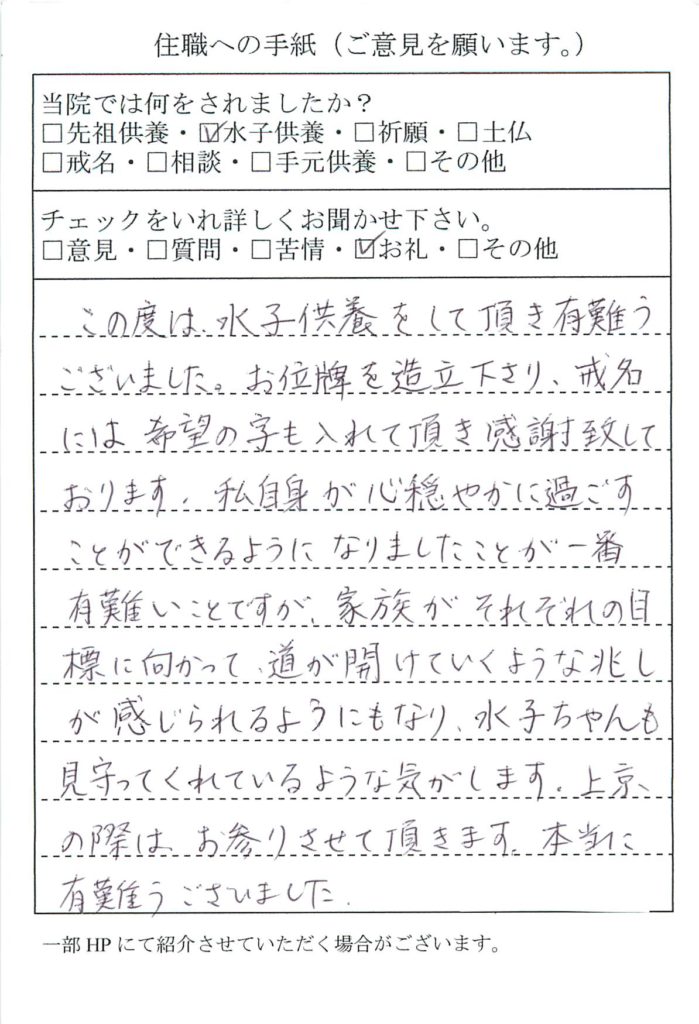 住職への手紙（ご意見を願います。）
当院では何をされましたか？
□先祖供養・☑水子供養・□祈願・□土仏
□戒名・□相談・□手元供養・□その他
チェックをいれ詳しくお聞かせ下さい。
□意見・□質問・□苦情・☑お礼・□その他
この度は、水子供養をして頂き有難う
ございました。お位牌を造立下さり、戒名
には希望の字も入れて頂き感謝致して
おります。私自身が心穏やかに過ごす
ことができるようになりましたことが一番
有難いことですが、家族がそれぞれの目
標に向かって、道が開けていくような兆し
が感じられるようにもなり、水子ちゃんも
見守ってくれているような気がします。上京、
の際は、お参りさせて頂きます。本当に
有難うございました。
一部HPにて紹介させていただく場合がございます。